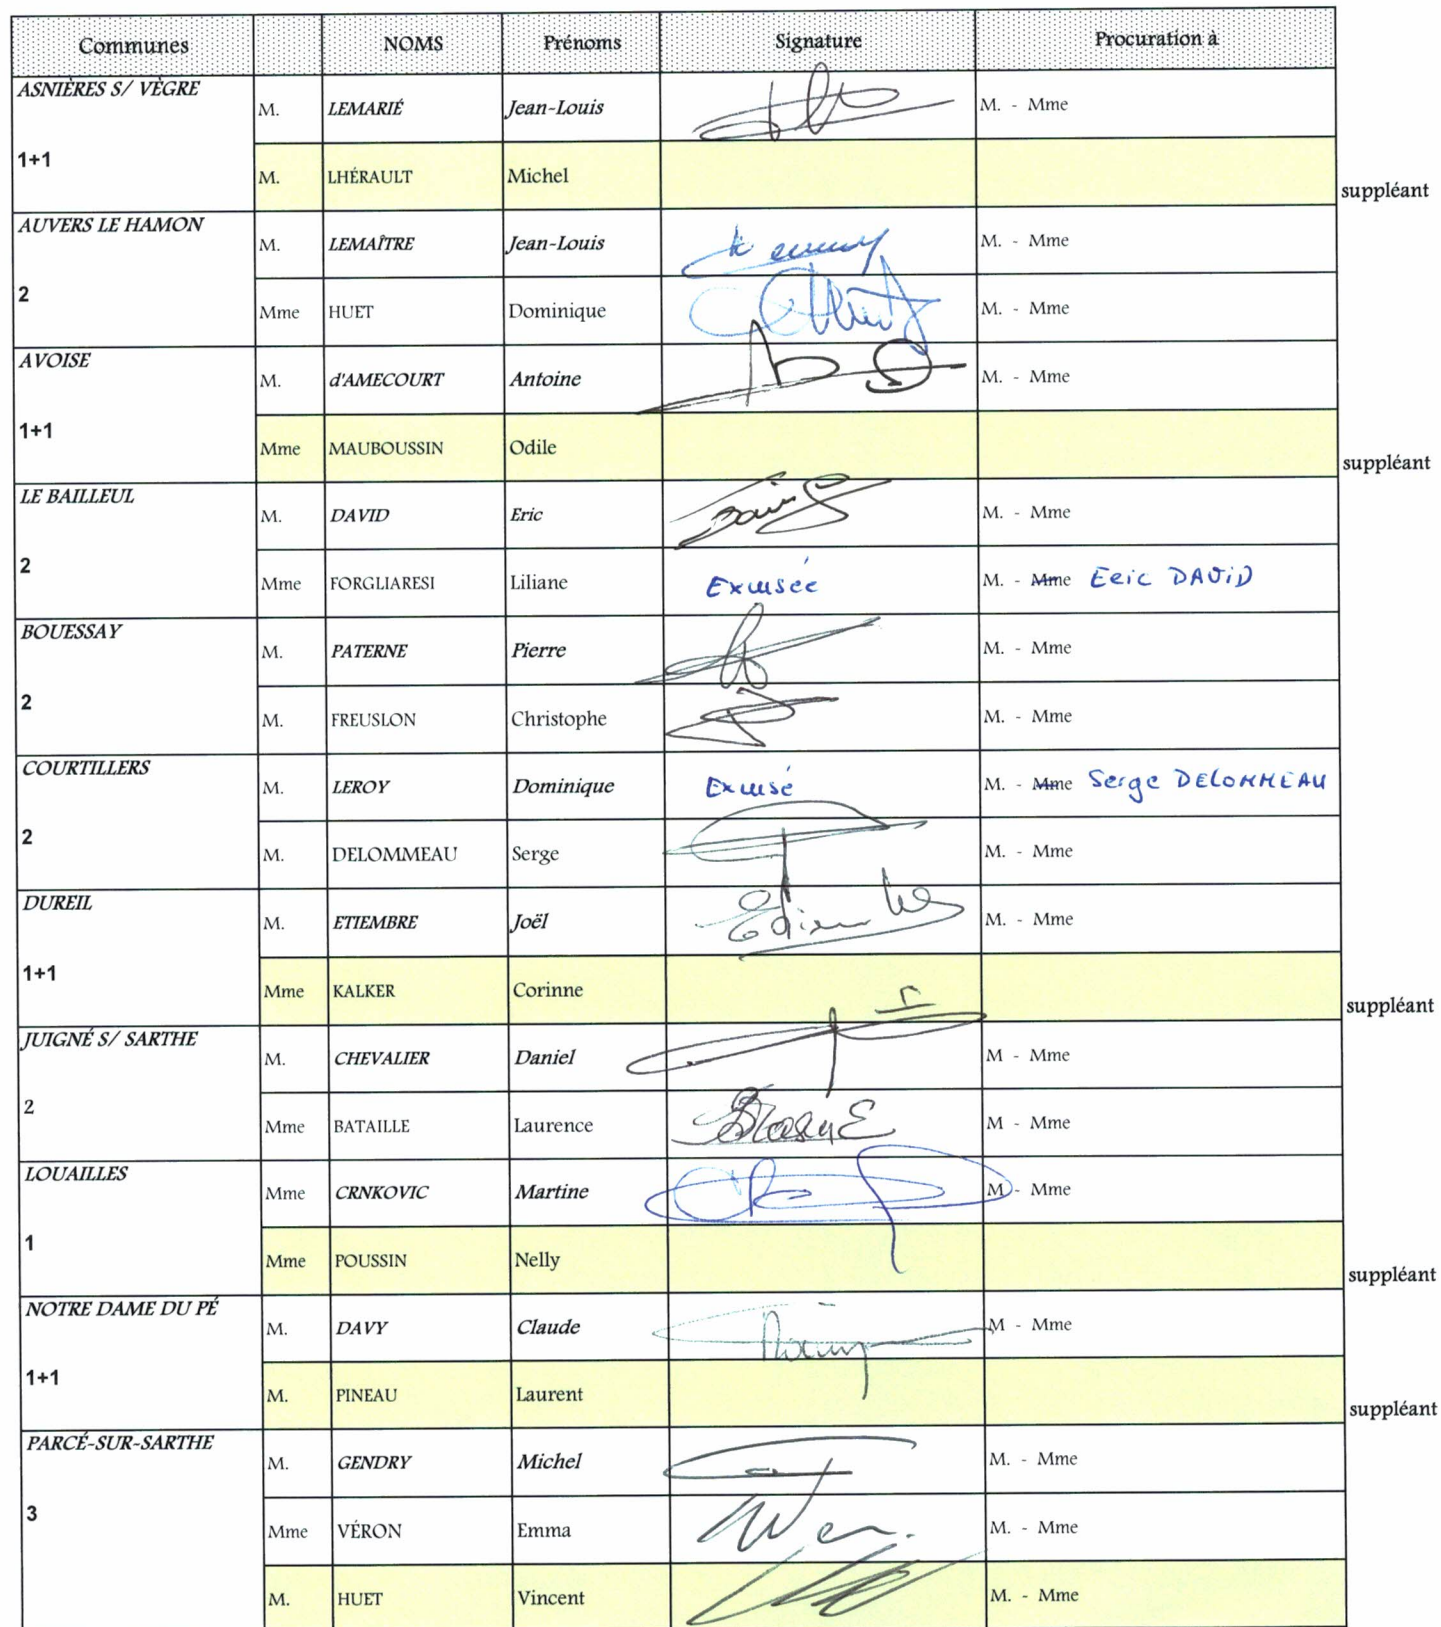 Communes NOMS Prénoms Signature Procuration à
ASNIÈRES S/ VÈGRE
M. LEMARIÉ Jean-Louis M. - Mme
1+1
M. LHÉRAULT Michel
suppléant
AUVERS LE HAMON
M. LEMAÎTRE Jean-Louis M. - Mme
2
Mme HUET Dominique M. - Mme
AVOISE
M. d'AMECOURT Antoine M. - Mme
1+1
Mme MAUBOUSSIN Odile
suppléant
LE BAILLEUL
M. DAVID Eric M. - Mme
2
Mme FORGLIARESI Liliane Excusée M. - Mme Eric DAVID
BOUESSAY
M. PATERNE Pierre M. - Mme
2
M. FREUSLON Christophe M. - Mme
COURTILLERS
M. LEROY Dominique Excusé M. - Mme Serge DELOMMEAU
2
M. DELOMMEAU Serge M. - Mme
DUREIL
M. ETIEMBRE Joël M. - Mme
1+1
Mme KALKER Corinne
suppléant
JUIGNÉ S/ SARTHE
M. CHEVALIER Daniel M - Mme
2
Mme BATAILLE Laurence M - Mme
LOUAILLES
Mme CRNKOVIC Martine M - Mme
1
Mme POUSSIN Nelly
suppléant
NOTRE DAME DU PÉ
M. DAVY Claude M - Mme
1+1
M. PINEAU Laurent
suppléant
PARCÉ-SUR-SARTHE
M. GENDRY Michel M. - Mme
3
Mme VÉRON Emma M. - Mme
M. HUET Vincent M. - Mme